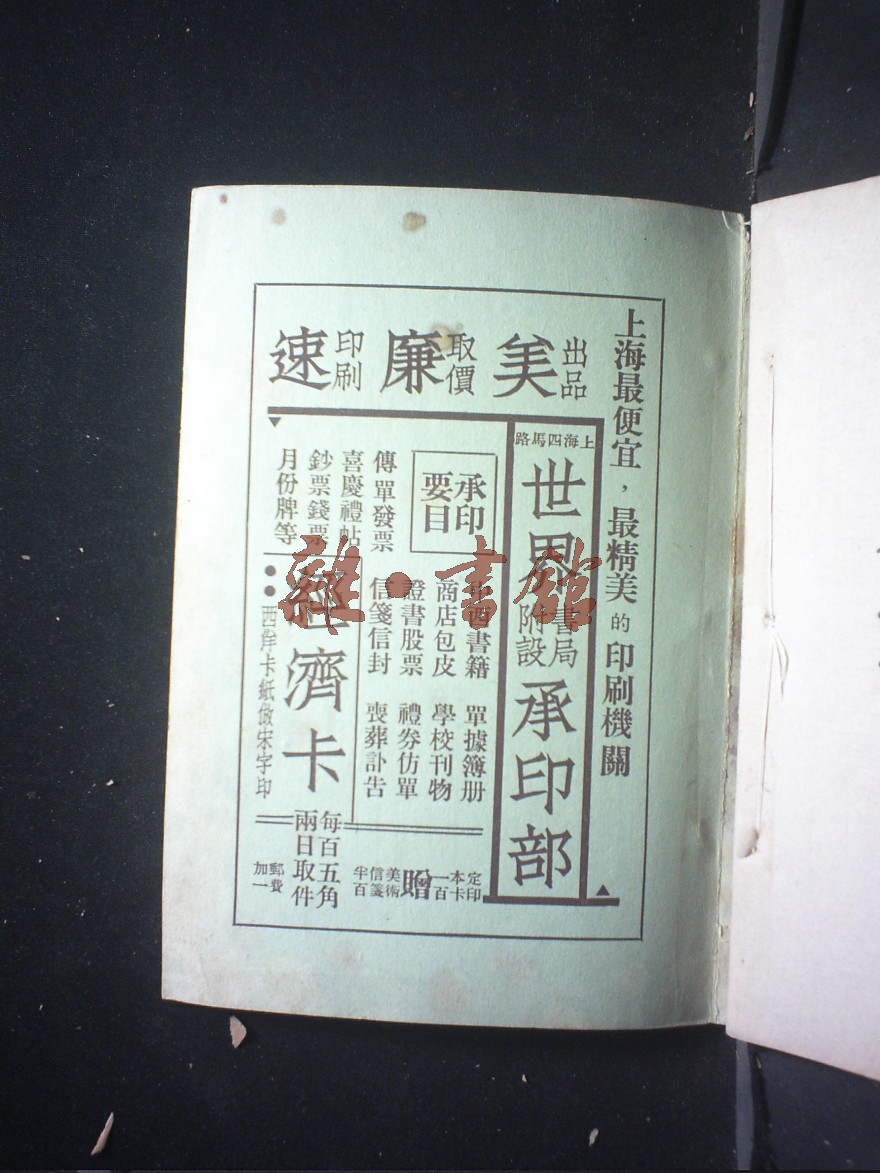 上海最便宜，最精美的印刷機關
出品美
取價廉
印刷速
上海四馬路
世界書局附設承印部
承印要目
中西書籍
單據簿册
商店包皮
學校刊物
證書股票
禮券仿單
信箋信封
喪葬訃告
傳單發票
喜慶禮帖
鈔票錢票
月份牌等
經濟卡
西洋卡紙倣宋字印
每百五角
兩日取件
郵費加一
定印本卡一百贈美術信箋半百
雜·書館